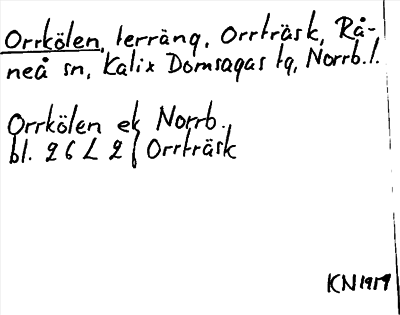 Orrkölen, terräng, Orrträsk, Rå-
neå sn, Kalix Domsagas tg, Norrb. l.
Orrkölen ek Norrb.
bl. 26 L 2 f Orrträsk
KN 1959